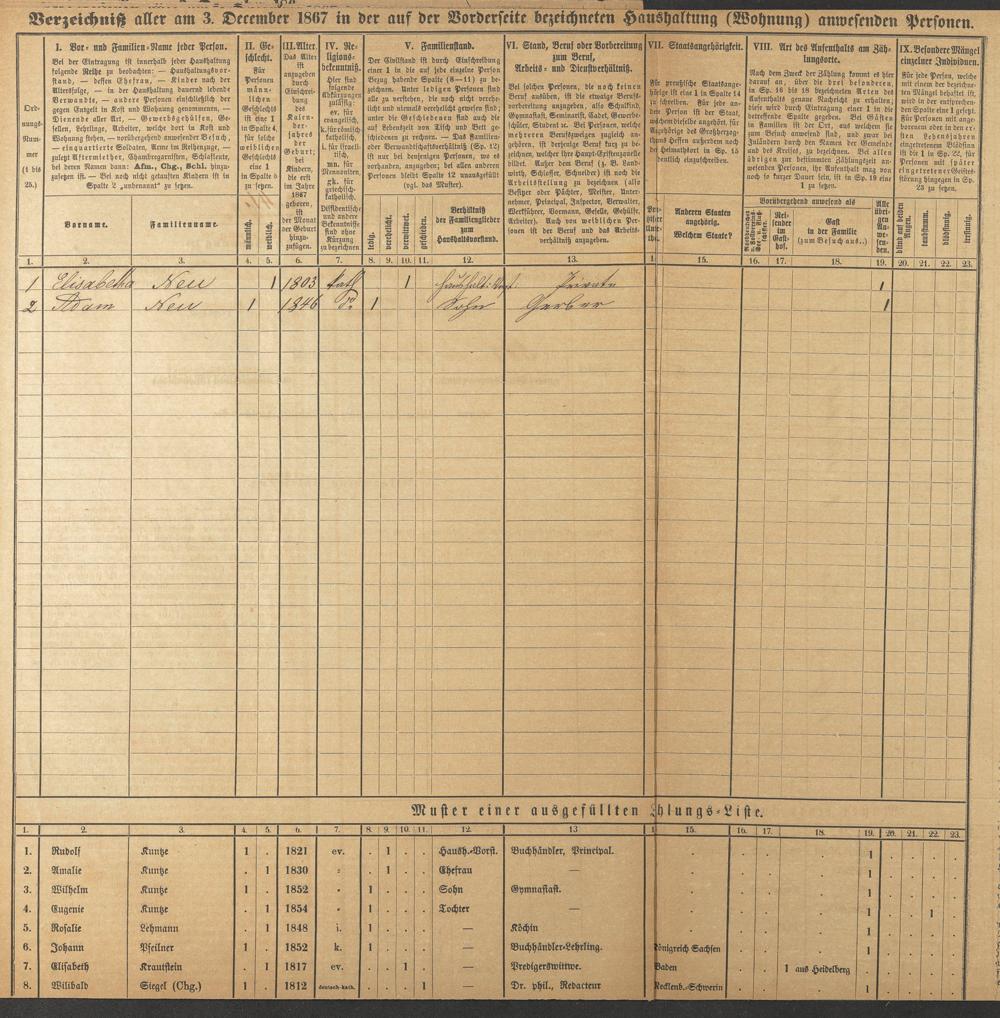 Verzeichniß aller am 3. December 1867 in der auf der Vorderseite bezeichneten Haushaltung (Wohnung) anwesenden Personen.
Ord-
nungs-
Num-
mer
(1 bis
25.)
I. Vor- und Familien-Name jeder Person.
Bei der Eintragung ist innerhalb jeder Haushaltung
folgende Reihe zu beobachten: — Haushaltungsvor-
stand, — dessen Ehefrau, — Kinder nach der
Altersfolge, — in der Haushaltung dauernd lebende
Verwandte, — andere Personen einschließlich der
Dienende aller Art, — Gewerbsgehülfen, Ge-
sellen, Lehrlinge, Arbeiter, welche dort in Kost und
Wohnung stehen, — vorübergehend anwesender Besuch,
— einquartierte Soldaten, Arme im Reihenzuge, —
zuletzt Aftermiether, Chambregarnisten, Schlafleute,
bei deren Namen dann: Afm., Chg., Schl. hinzu-
zusetzen ist. — Bei noch nicht getauften Kindern ist in
Spalte 2 „unbenannt“ zu setzen.
Vorname.
Familienname.
II. Ge-
schlecht.
Für
Personen
männ-
lichen
Geschlechts
ist eine 1
in Spalte 4,
für solche
weiblichen
Geschlechts
eine 1
in Spalte 5
zu setzen.
männlich.
weiblich.
III. Alter.
Das Alter
ist
anzugeben
durch
Einschrei-
bung
des
Kalen-
der-
jahres
der
Geburt;
bei
Kindern,
die erst
im Jahre
1867
geboren,
ist
der Monat
der Geburt
hinzu-
zufügen.
IV. Re-
ligions-
bekenntniß.
Hier sind
folgende
Abkürzungen
zulässig:
ev. für
evangelisch,
k. für römisch-
katholisch,
i. für Israeli-
tisch,
mn. für
Mennoniten,
gk. für
griechisch-
katholisch.
Dissidentische
und andere
Bekenntnisse
sind ohne
Kürzung
zu bezeichnen
V. Familienstand.
Der Civilstand ist durch Einschreibung
einer 1 in die auf jede einzelne Person
Bezug habende Spalte (8—11) zu be-
zeichnen. Unter ledigen Personen sind
alle zu verstehen, die noch nicht verehe-
licht und niemals verehelicht gewesen sind;
unter die Geschiedenen sind auch die
auf Lebenszeit von Tisch und Bett ge-
schiedenen zu rechnen. — Das Familien-
oder Verwandtschaftsverhältniß (Sp. 12)
ist nur bei denjenigen Personen, wo es
vorhanden, anzugeben; bei allen anderen
Personen bleibt Spalte 12 unausgefüllt
(vgl. das Muster).
ledig.
verehelicht.
verwittwet.
geschieden.
Verhältniß
der Familienglieder
zum
Haushaltsvorstand.
VI. Stand, Beruf oder Vorbereitung
zum Beruf,
Arbeits- und Dienstverhältniß.
Bei solchen Personen, die noch keinen
Beruf ausüben, ist die etwaige Berufs-
vorbereitung anzugeben, also Schulkind,
Gymnasiast, Seminarist, Cadet, Gewerbe-
schüler, Student ꝛc. Bei Personen, welche
mehreren Berufszweigen zugleich an-
gehören, ist derjenige Beruf kurz zu be-
zeichnen, welcher ihre Haupt-Existenzquelle
bildet. Außer dem Beruf (z. B. Land-
wirth, Schlosser, Schneider) ist noch die
Arbeitsstellung zu bezeichnen (also
Besitzer oder Pächter, Meister, Unter-
nehmer, Principal, Inspector, Verwalter,
Werkführer, Vormann, Geselle, Gehülfe,
Arbeiter). Auch von weiblichen Per-
sonen ist der Beruf und das Arbeits-
verhältniß anzugeben.
VII. Staatsangehörigkeit.
Anderen Staaten
angehörig.
Welchem Staate?
VIII. Art des Aufenthalts am Zäh-
lungsorte.
Nach dem Zweck der Zählung kommt es hier
darauf an, über die drei besonderen,
in Sp. 16 bis 18 bezeichneten Arten des
Aufenthalts genaue Nachricht zu erhalten;
diese wird durch Eintragung einer 1 in die
betreffende Spalte gegeben. Bei Gästen
in Familien ist der Ort, aus welchem sie
zum Besuch anwesend sind, und zwar bei
Inländern durch den Namen der Gemeinde
und des Kreises, zu bezeichnen. Bei allen
übrigen zur bestimmten Zählungszeit an-
wesenden Personen, ihr Aufenthalt mag von
noch so kurzer Dauer sein, ist in Sp. 19 eine
1 zu setzen.
Vorübergehend anwesend als
Rei-
sender
im
Gast-
hof.
Gast
in der Familie
(zum Besuch aus..)
Alle
übri-
gen
An-
we-
sen-
den.
IX. Besondere Mängel
einzelner Individuen.
Für jede Person, welche
mit einem der bezeich-
neten Mängel behaftet ist,
wird in der entsprechen-
den Spalte eine 1 gesetzt.
Für Personen mit ange-
bornem oder in den er-
sten Lebensjahren
eingetretenem Blödsinn
ist die 1 in Sp. 22, für
Personen mit später
eingetretener Geistes-
störung hingegen in Sp.
23 zu setzen.
blind auf beiden
Augen.
taubstumm.
blödsinnig.
irrsinnig.
1. 2. 3. 4. 5. 6. 7. 8. 9. 10. 11. 12. 13. 15. 16. 17. 18. 19. 20. 21. 22. 23.
1 Elisabetha Neu 1 1803 kath 1 Private 1
2 Adam Neu 1 1846 do. 1 Sohn Gerber 1
Muster einer ausgefüllten hlungs-Liste.
1. 2. 3. 4. 5. 6. 7. 8. 9. 10. 11. 12. 13 15. 16. 17. 18. 19. 20. 21. 22. 23.
1. Rudolf Kuntze 1 . 1821 ev. . 1 . . Haush.-Vorst. Buchhändler, Principal. . . . . 1 . . . .
2. Amalie Kuntze . 1 1830 " . 1 . . Ehefrau — . . . . 1 . . . .
3. Wilhelm Kuntze 1 . 1852 " 1 . . . Sohn Gymnasiast. . . . . 1 . . . .
4. Eugenie Kuntze . 1 1854 " 1 . . . Tochter — . . . . 1 . . 1 .
5. Rosalie Lehmann . 1 1848 i. 1 . . . — Köchin . . . . 1 . . . .
6. Johann Pfeilner 1 . 1852 k. 1 . . . — Buchhändler-Lehrling. Königreich Sachsen . . . 1 . . . .
7. Elisabeth Krautstein . 1 1817 ev. . . 1 . — Predigerswittwe. Baden . . 1 aus Heidelberg . . . . .
8. Wilibald Siegel (Chg.) 1 . 1812 deutsch-kath. . . . 1 — Dr. phil., Redacteur Mecklenb.-Schwerin . . . 1 . . . .